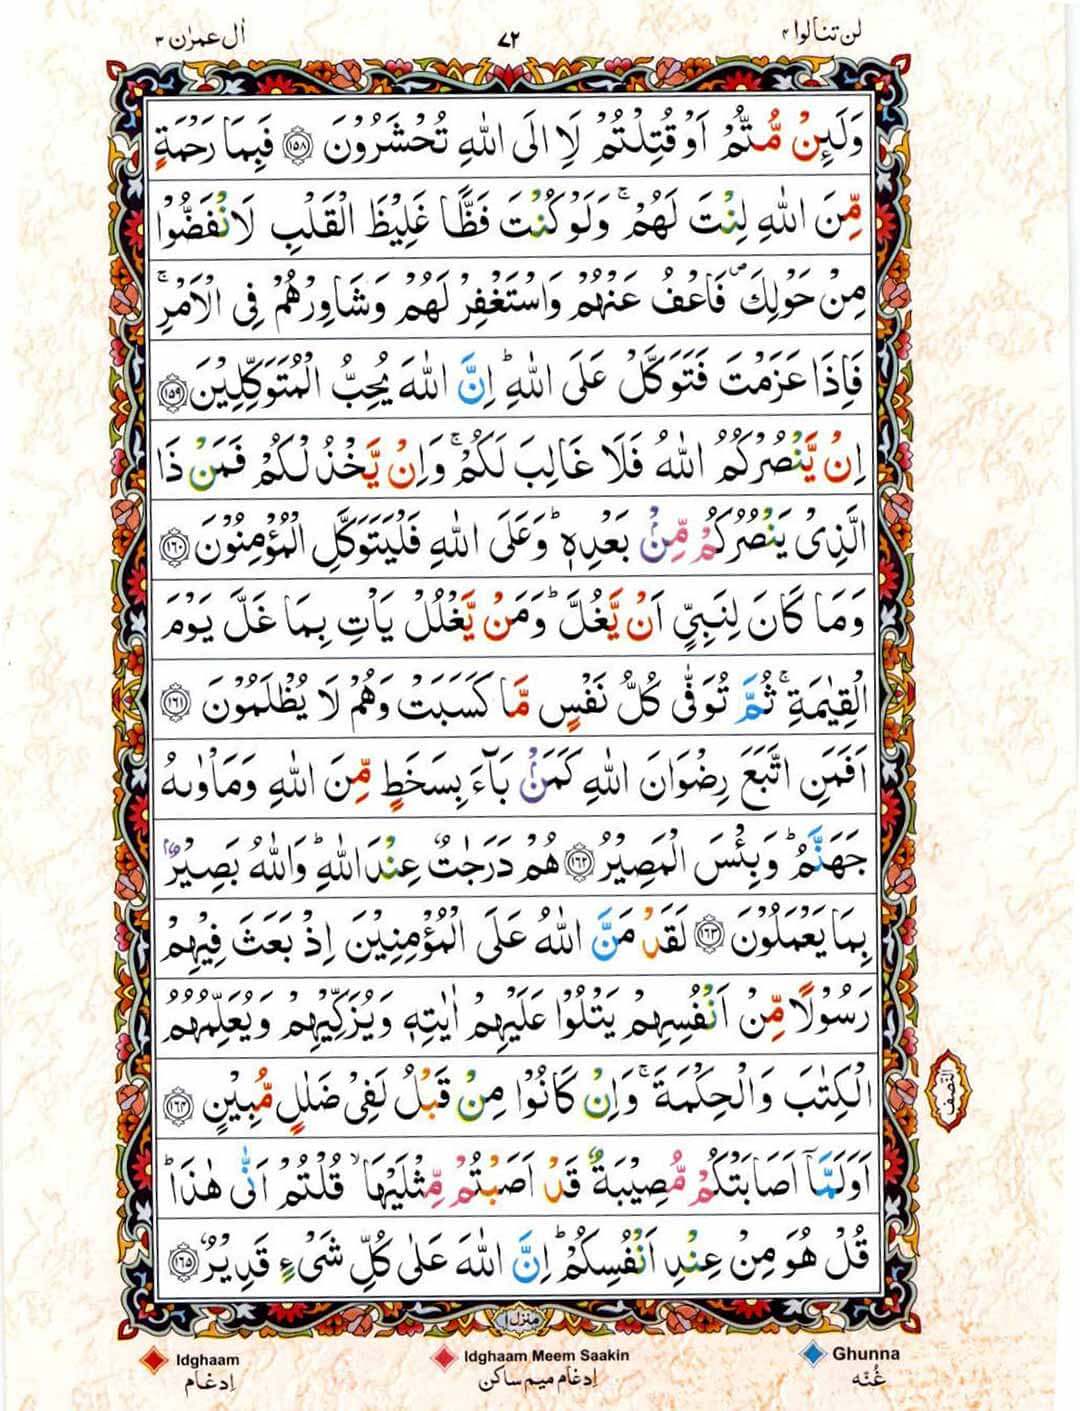 لن تنالوا ۴
۷۲
اٰل عمرٰن ۳
وَلَىِٕنْ مُّتُّمْ اَوْ قُتِلْتُمْ لَاۡ اِلَى اللّٰهِ تُحْشَرُوْنَ ۝۱۵۸ فَبِمَا رَحْمَةٍ
مِّنَ اللّٰهِ لِنْتَ لَهُمْ ۚ وَلَوْ كُنْتَ فَظًّا غَلِيْظَ الْقَلْبِ لَانْفَضُّوْا
مِنْ حَوْلِكَ ۪ فَاعْفُ عَنْهُمْ وَاسْتَغْفِرْ لَهُمْ وَشَاوِرْهُمْ فِى الْاَمْرِ ۚ
فَاِذَا عَزَمْتَ فَتَوَكَّلْ عَلَى اللّٰهِ ؕ اِنَّ اللّٰهَ يُحِبُّ الْمُتَوَكِّلِيْنَ ۝۱۵۹
اِنْ يَّنْصُرْكُمُ اللّٰهُ فَلَا غَالِبَ لَكُمْ ۚ وَاِنْ يَّخْذُلْكُمْ فَمَنْ ذَا
الَّذِىْ يَنْصُرُكُمْ مِّنْۢ بَعْدِهٖ ؕ وَعَلَى اللّٰهِ فَلْيَتَوَكَّلِ الْمُؤْمِنُوْنَ ۝۱۶۰
وَمَا كَانَ لِنَبِىٍّ اَنْ يَّغُلَّ ؕ وَمَنْ يَّغْلُلْ يَاْتِ بِمَا غَلَّ يَوْمَ
الْقِيٰمَةِ ۚ ثُمَّ تُوَفّٰى كُلُّ نَفْسٍ مَّا كَسَبَتْ وَهُمْ لَا يُظْلَمُوْنَ ۝۱۶۱
اَفَمَنِ اتَّبَعَ رِضْوَانَ اللّٰهِ كَمَنْۢ بَآءَ بِسَخَطٍ مِّنَ اللّٰهِ وَمَاْوٰىهُ
جَهَنَّمُ ؕ وَبِئْسَ الْمَصِيْرُ ۝۱۶۲ هُمْ دَرَجٰتٌ عِنْدَ اللّٰهِ ؕ وَاللّٰهُ بَصِيْرٌۢ
بِمَا يَعْمَلُوْنَ ۝۱۶۳ لَقَدْ مَنَّ اللّٰهُ عَلَى الْمُؤْمِنِيْنَ اِذْ بَعَثَ فِيْهِمْ
رَسُوْلًا مِّنْ اَنْفُسِهِمْ يَتْلُوْا عَلَيْهِمْ اٰيٰتِهٖ وَيُزَكِّيْهِمْ وَيُعَلِّمُهُمُ
الْكِتٰبَ وَالْحِكْمَةَ ۚ وَاِنْ كَانُوْا مِنْ قَبْلُ لَفِىْ ضَلٰلٍ مُّبِيْنٍ ۝۱۶۴
النّصف
اَوَلَمَّاۤ اَصَابَتْكُمْ مُّصِيْبَةٌ قَدْ اَصَبْتُمْ مِّثْلَيْهَا ۙ قُلْتُمْ اَنّٰى هٰذَا ؕ
قُلْ هُوَ مِنْ عِنْدِ اَنْفُسِكُمْ ؕ اِنَّ اللّٰهَ عَلٰى كُلِّ شَىْءٍ قَدِيْرٌ ۝۱۶۵
منزل ۱
Idghaam
Idghaam Meem Saakin
Ghunna
اِدغام
اِدغام میم ساکن
غُنّه